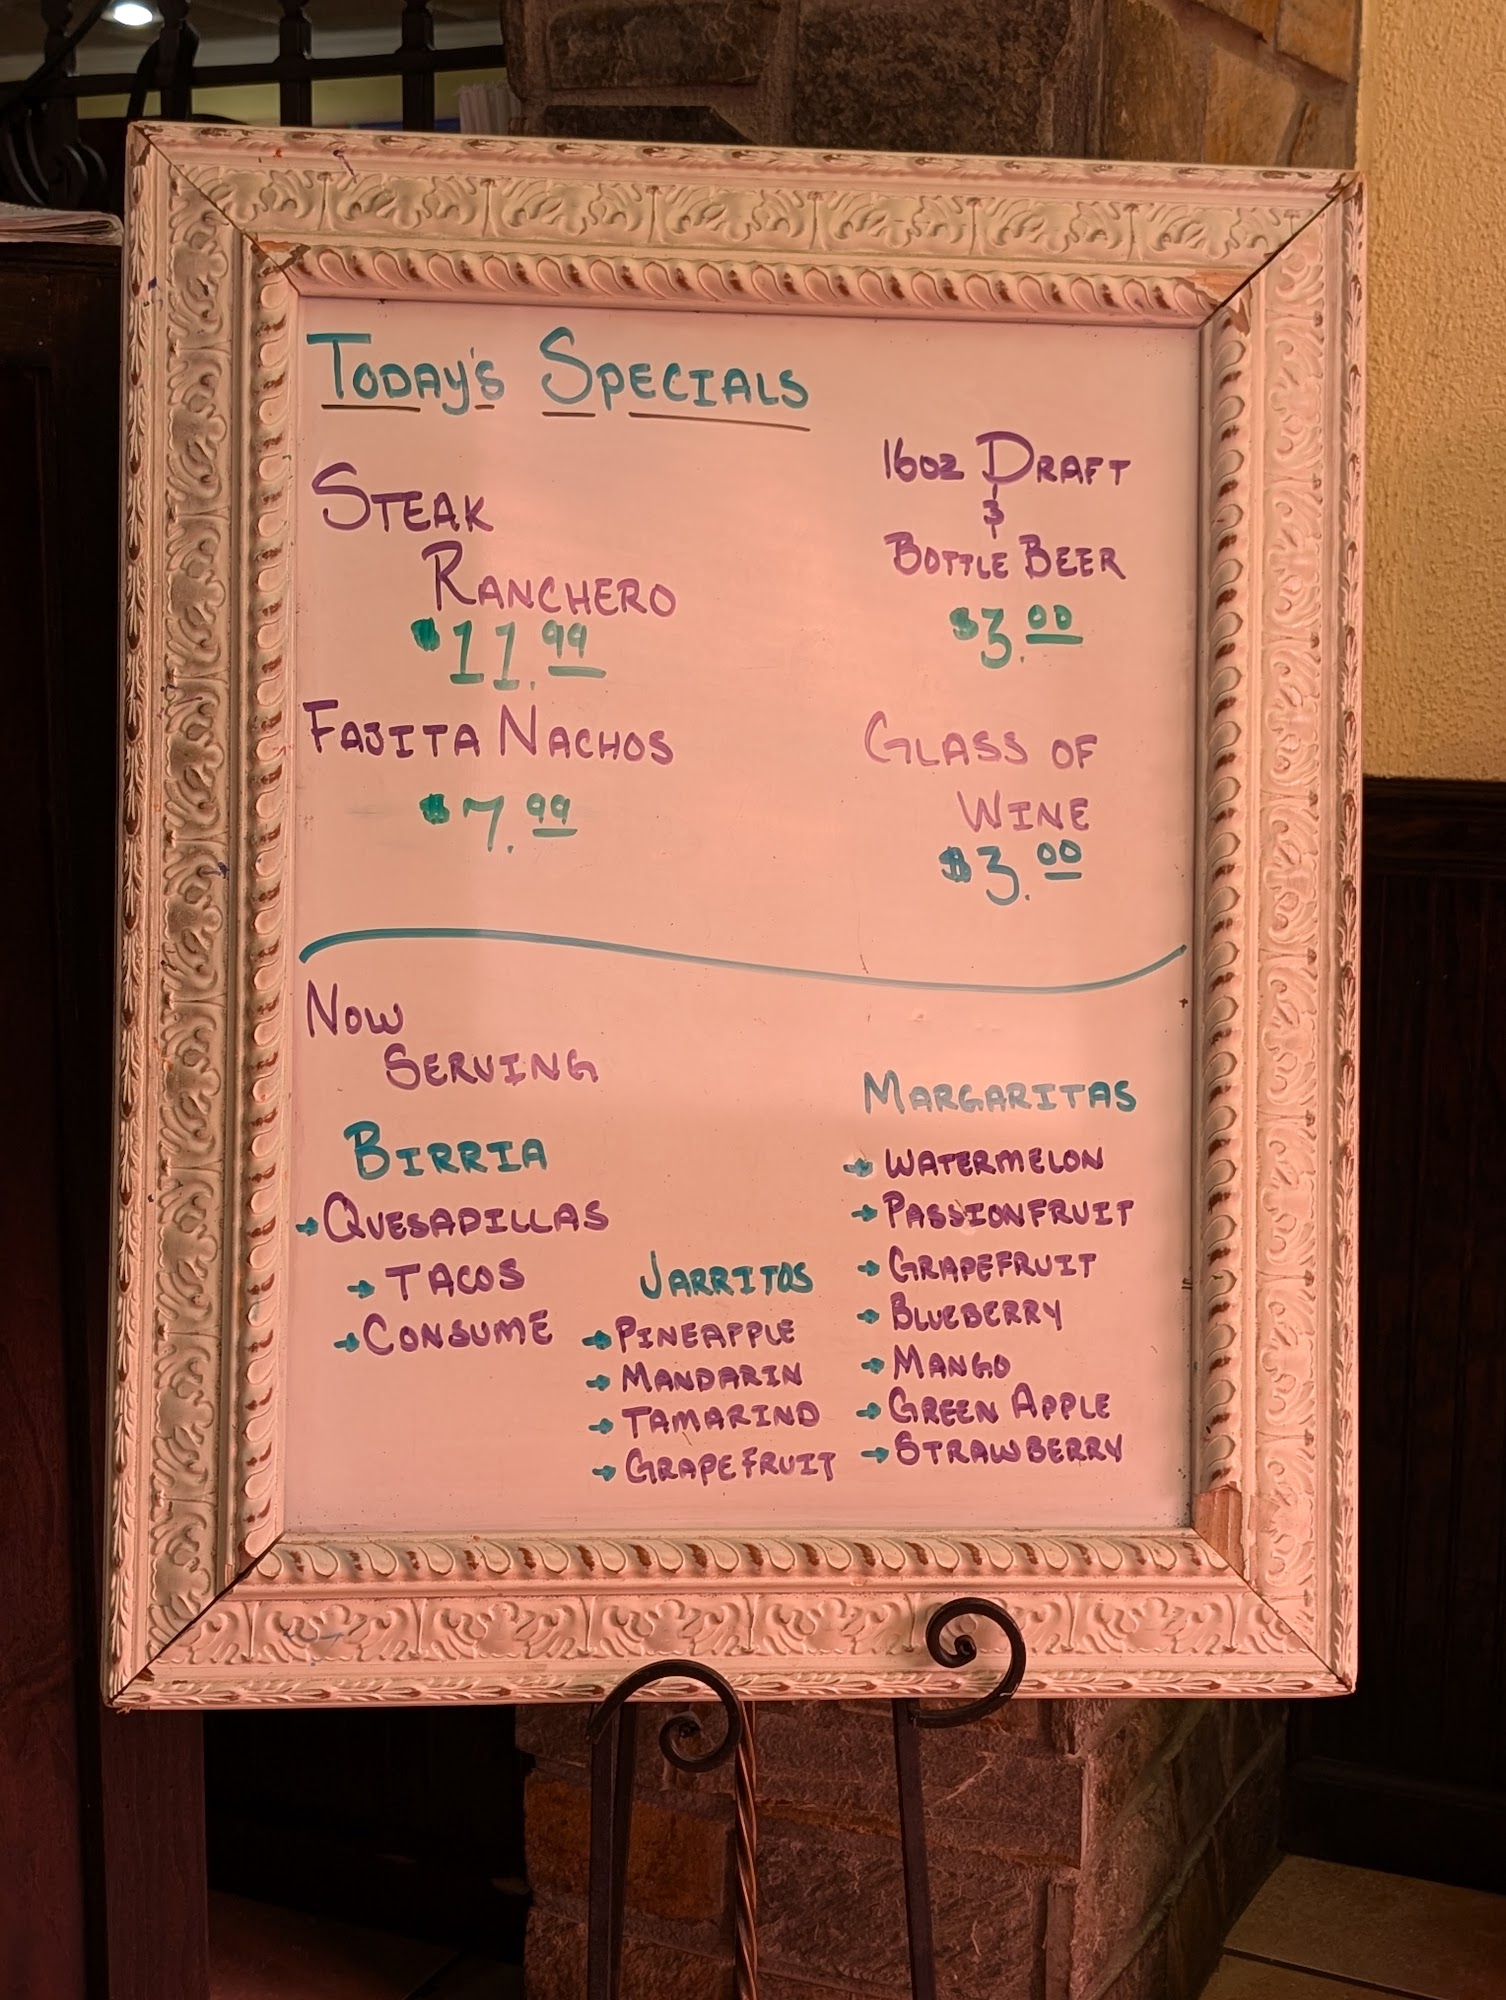 TODAY'S SPECIALS
STEAK
RANCHERO
$11.99
FAJITA NACHOS
$7.99
16oz DRAFT
&
BOTTLE BEER
$3.00
GLASS OF
WINE
$3.00
NOW
SERVING
BIRRIA
→ QUESADILLAS
→ TACOS
→ CONSUME
JARRITOS
→ PINEAPPLE
→ MANDARIN
→ TAMARIND
→ GRAPEFRUIT
MARGARITAS
→ WATERMELON
→ PASSIONFRUIT
→ GRAPEFRUIT
→ BLUEBERRY
→ MANGO
→ GREEN APPLE
→ STRAWBERRY